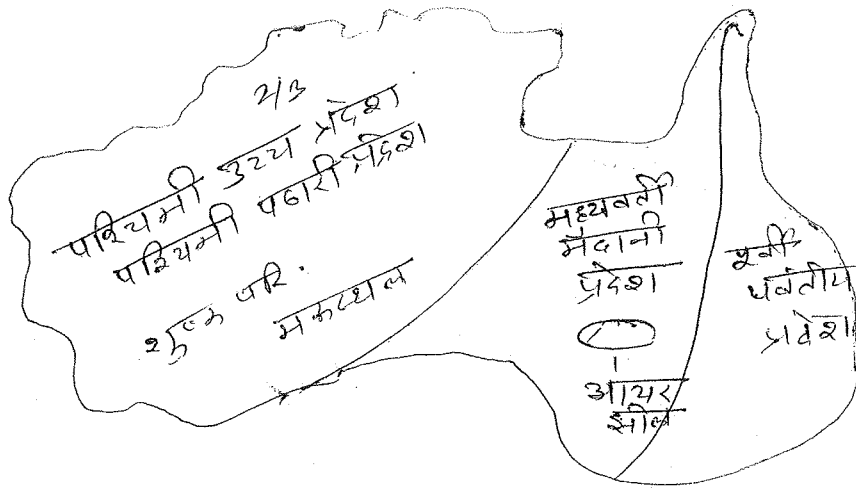 2/3
पश्चिमी उच्च प्रदेश
पश्चिमी पठारी प्रदेश
शुष्क परि.
मरूस्थल
मध्यवर्ती
मैदानी
प्रदेश
आयर
झील
पूर्वी
पर्वतीय
प्रदेश